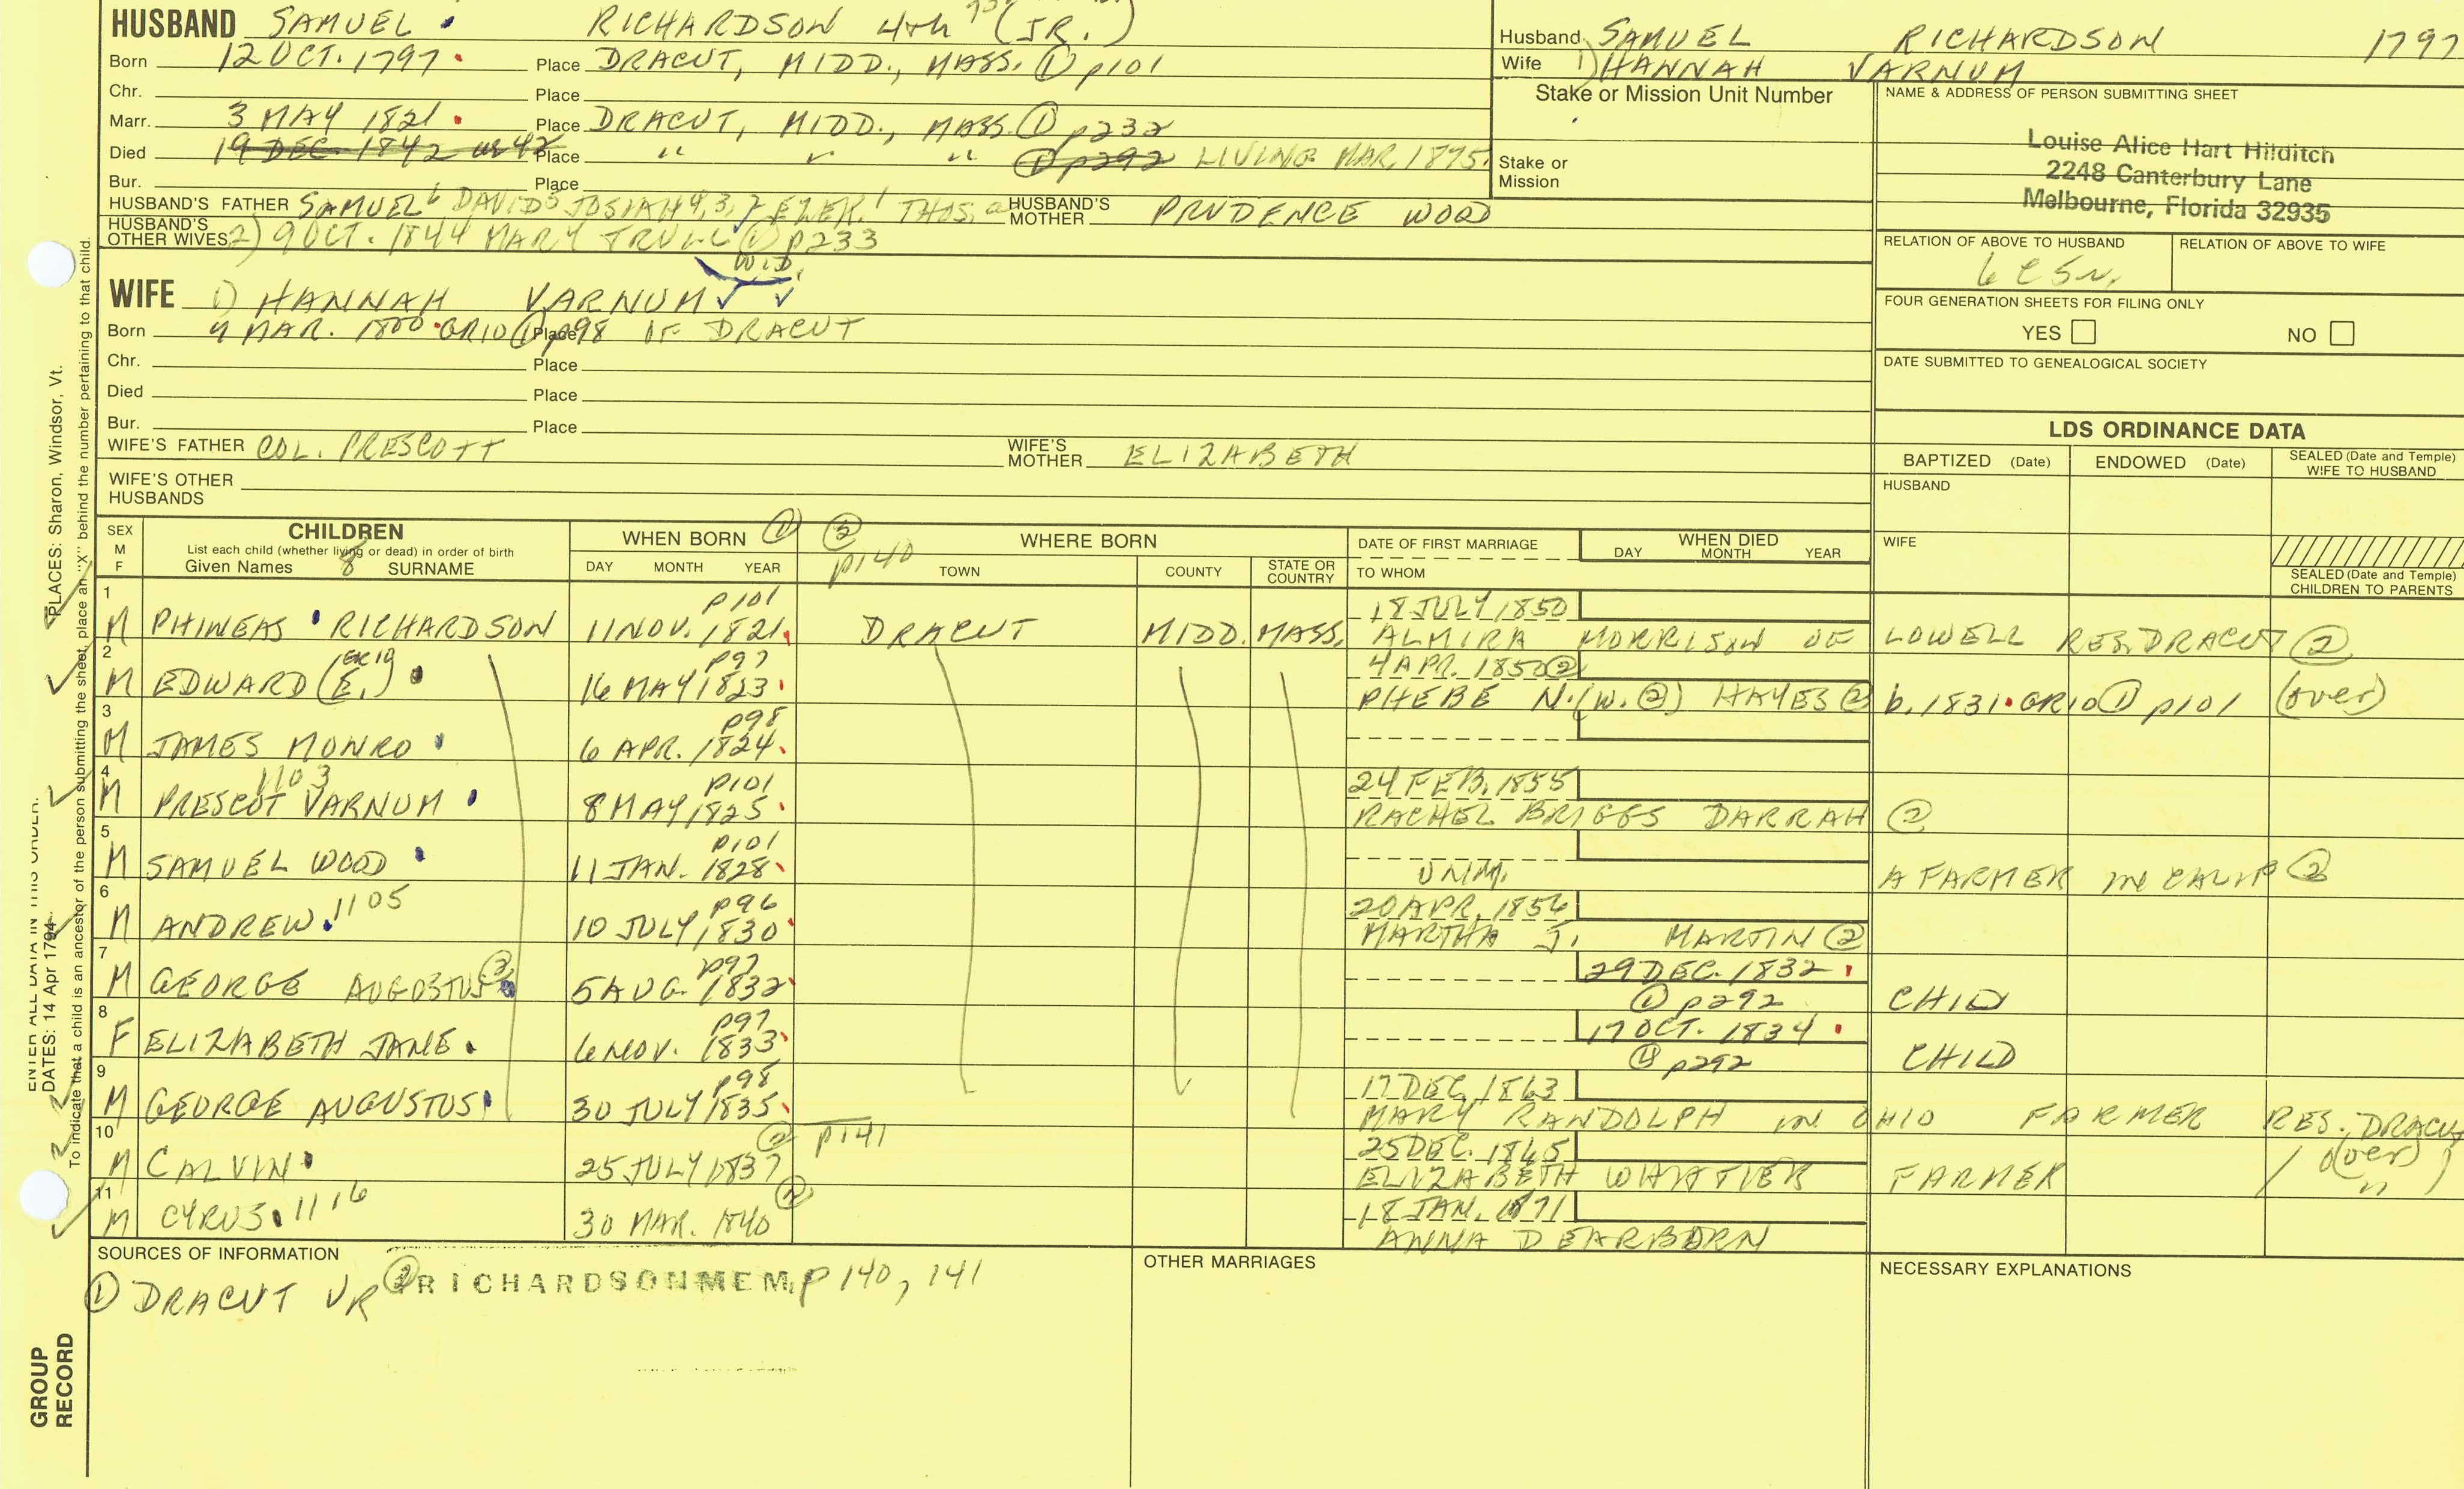 HUSBAND SAMUEL RICHARDSON 4th (JR.)
Born 12 OCT. 1797 Place DRACUT, MIDD., MASS. ① p101
Chr. Place
Marr. 3 MAY 1821 Place DRACUT, MIDD., MASS. ① p232
Died 19 DEC 1842 Place " " " ① p292 LIVING MAR, 1875.
Bur. Place
HUSBAND'S FATHER SAMUEL 6 DAVID 5 JOSIAH 4, 3, 2 EZEK. 1 THOS. HUSBAND'S MOTHER PRUDENCE WOOD
HUSBAND'S OTHER WIVES 2) 9 OCT. 1844 MARY TRULL ① p233
WID.
WIFE 1) HANNAH VARNUM
Born 9 MAR. 1800 GR10 ① p98 Place OF DRACUT
Chr. Place
Died Place
Bur. Place
WIFE'S FATHER COL. PRESCOTT WIFE'S MOTHER ELIZABETH
WIFE'S OTHER HUSBANDS
Husband SAMUEL RICHARDSON 1797
Wife 1) HANNAH VARNUM
Stake or Mission Unit Number
Stake or Mission
NAME & ADDRESS OF PERSON SUBMITTING SHEET
Louise Alice Hart Hilditch
2248 Canterbury Lane
Melbourne, Florida 32935
RELATION OF ABOVE TO HUSBAND RELATION OF ABOVE TO WIFE
6C5
FOUR GENERATION SHEETS FOR FILING ONLY
YES NO
DATE SUBMITTED TO GENEALOGICAL SOCIETY
LDS ORDINANCE DATA
BAPTIZED (Date) ENDOWED (Date) SEALED (Date and Temple) WIFE TO HUSBAND
HUSBAND
WIFE
SEALED (Date and Temple) CHILDREN TO PARENTS
SEX M F
CHILDREN
List each child (whether living or dead) in order of birth
Given Names 8 SURNAME
WHEN BORN ①
DAY MONTH YEAR
② p140
WHERE BORN
TOWN COUNTY STATE OR COUNTRY
DATE OF FIRST MARRIAGE
TO WHOM
WHEN DIED
DAY MONTH YEAR
1 p101 18 JULY 1850
M PHINEAS RICHARDSON 11 NOV. 1821 DRACUT MIDD. MASS. ALMIRA MORRISON OF LOWELL RES. DRACUT ②
2 GR10 p97 4 APR. 1850 ②
M EDWARD (E.) 16 MAY 1823 PHEBE N. (W. ②) HAYES ② b. 1831 GR10 ① p101 (over)
3 p98
M JAMES MONRO 6 APR. 1824
4 1103 p101 24 FEB. 1855
M PRESCOT VARNUM 8 MAY 1825 RACHEL BRIGGS DARRAH ②
5 p101
M SAMUEL WOOD 11 JAN. 1828 UNM. A FARMER IN CALIF ②
6 1105 p96 20 APR. 1856
M ANDREW 10 JULY 1830 MARTHA J. MARTIN ②
7 p97 29 DEC. 1832
M GEORGE AUGUSTUS 5 AUG. 1832 ① p292 CHILD
8 p97 17 OCT. 1834
F ELIZABETH JANE 6 NOV. 1833 p292 CHILD
9 p98 17 DEC. 1863
M GEORGE AUGUSTUS 30 JULY 1835 MARY RANDOLPH IN OHIO FARMER RES. DRACUT
10 ② p141 25 DEC. 1865 (over)
M CALVIN 25 JULY 1837 ELIZABETH WHITTIER FARMER "
11 1116 ② 18 JAN. 1871
M CYRUS 30 MAR. 1840 ANNA DEARBORN
SOURCES OF INFORMATION
① DRACUT VR ② RICHARDSON MEM p 140, 141
OTHER MARRIAGES
NECESSARY EXPLANATIONS
PLACES: Sharon, Windsor, Vt.
DATES: 14 Apr 1794
ENTER ALL DATA IN THIS ORDER:
To indicate that a child is an ancestor of the person submitting the sheet, place an "X" behind the number pertaining to that child.
GROUP RECORD